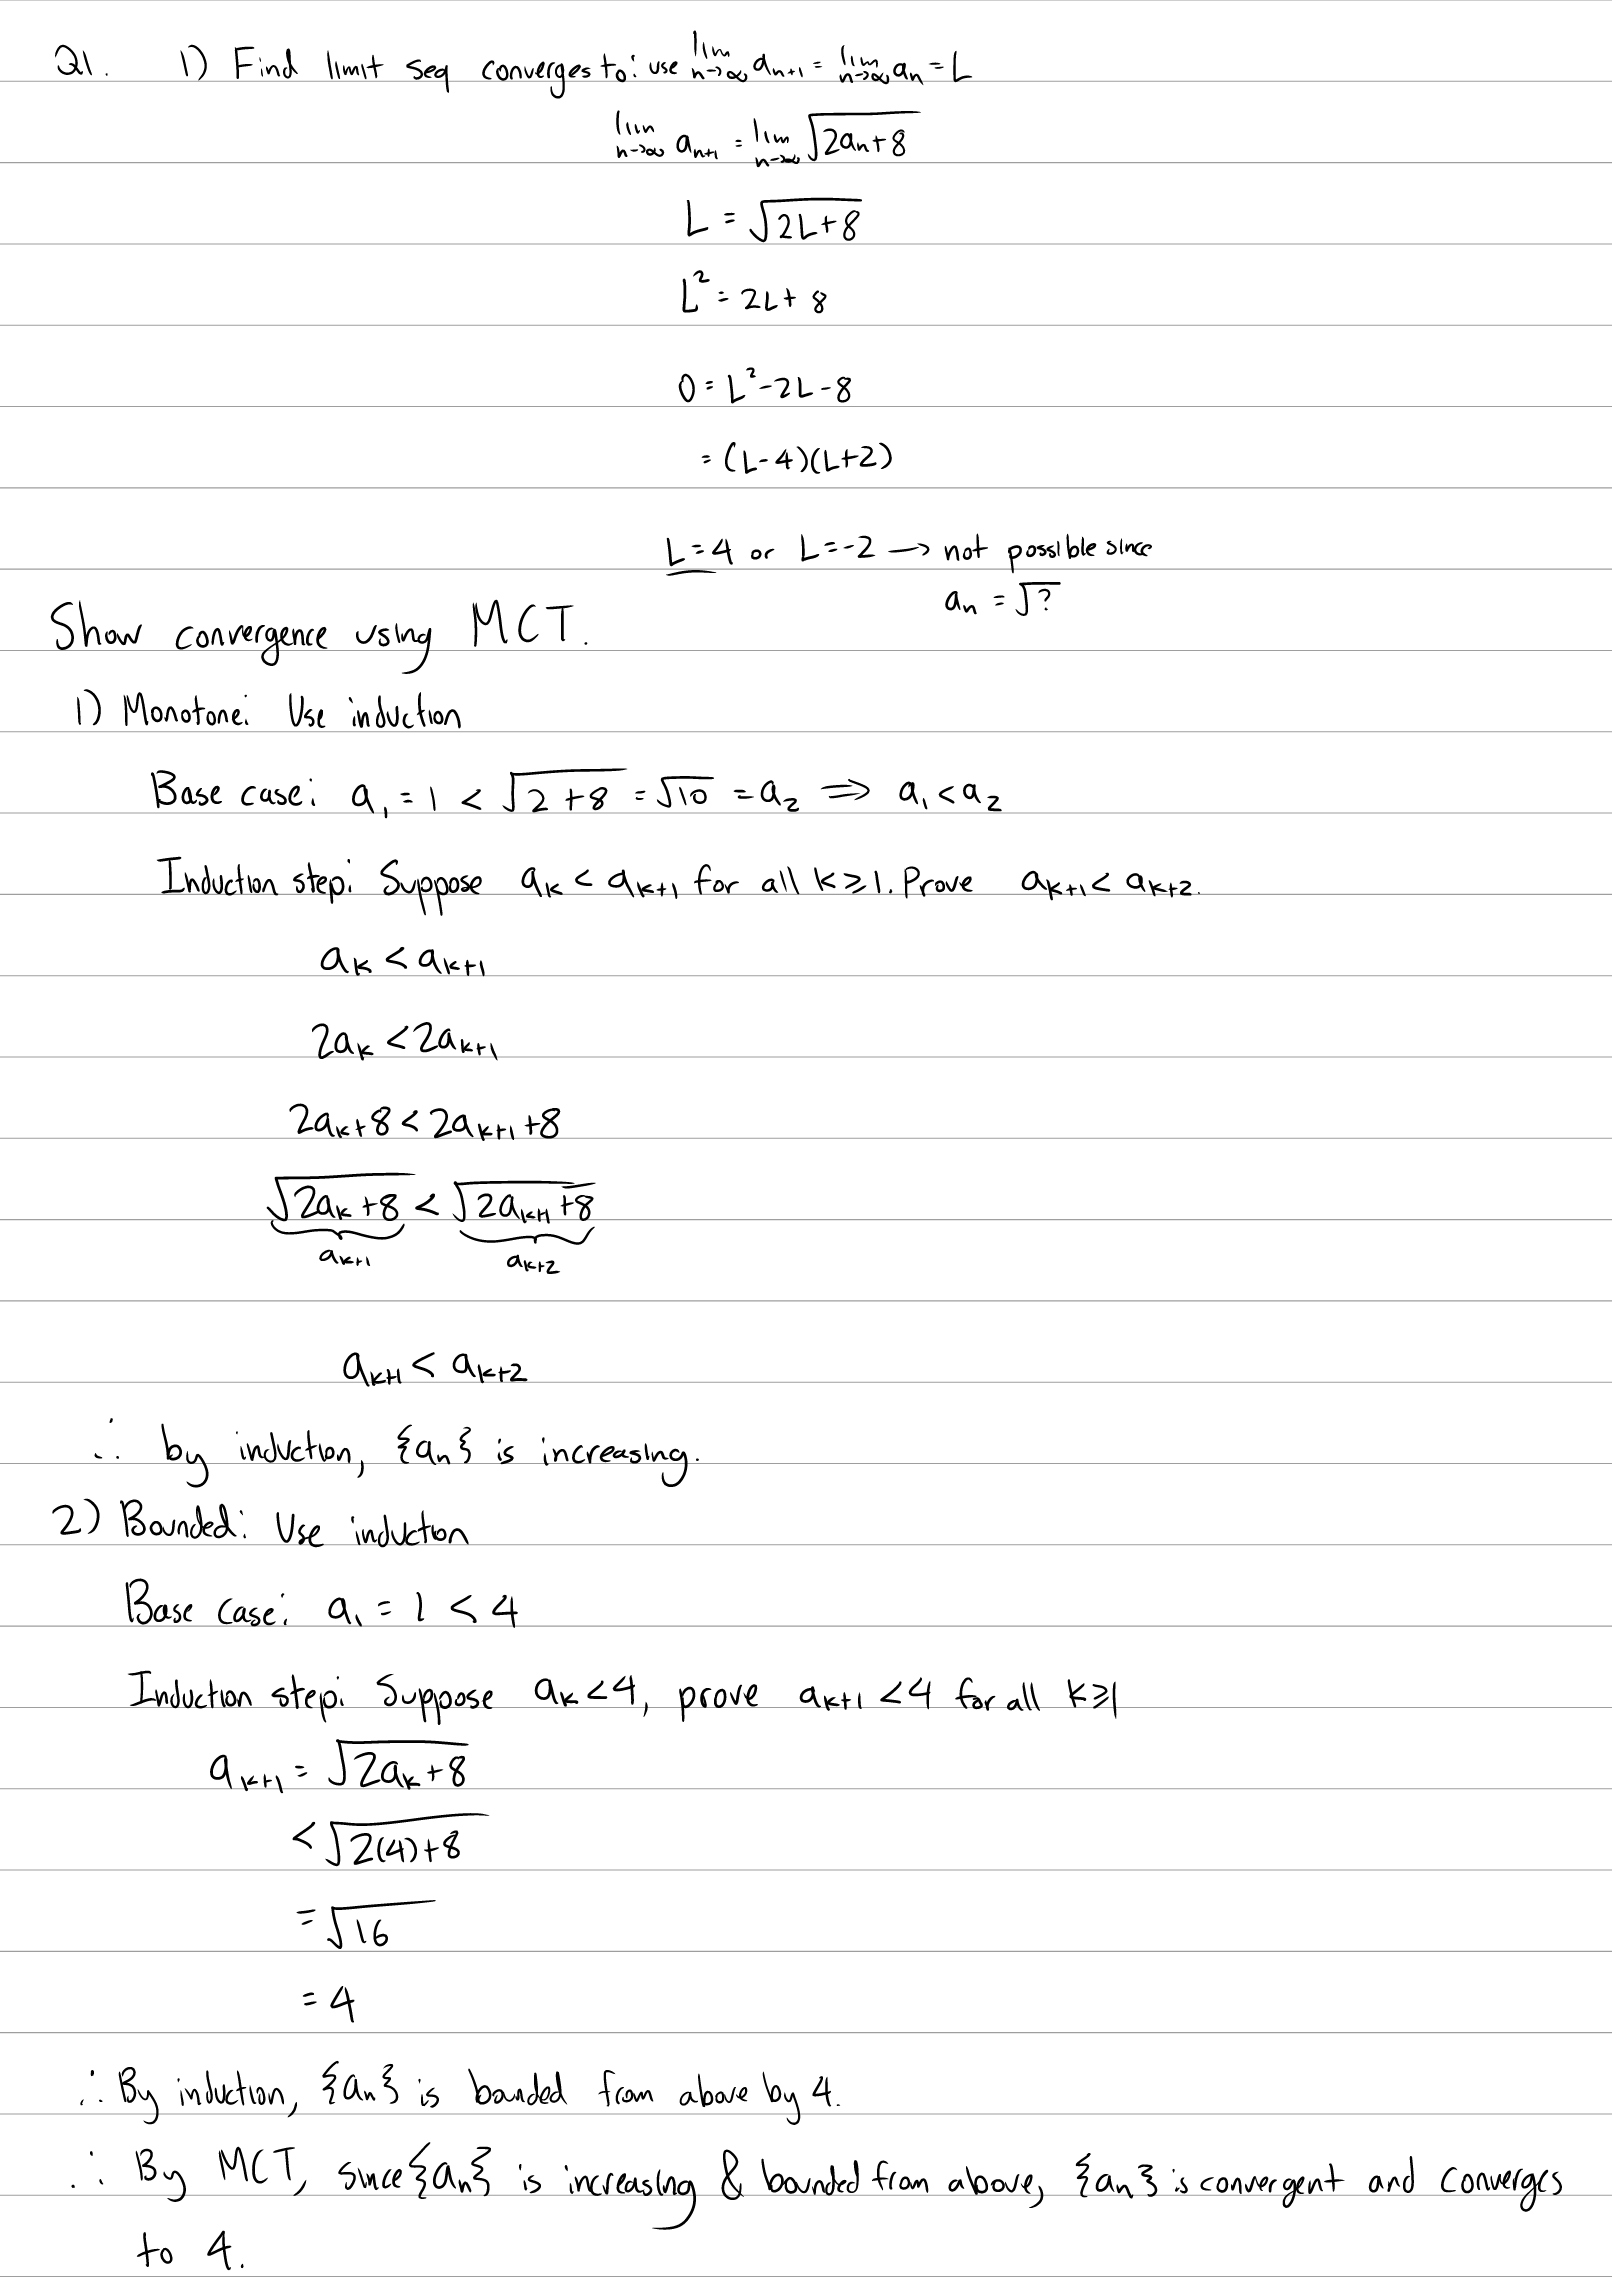 Q1. 1) Find limit seq converges to: use lim n→∞ a_{n+1} = lim n→∞ a_n = L
lim n→∞ a_{n+1} = lim n→∞ √(2a_n+8)
L = √(2L+8)
L² = 2L + 8
0 = L² - 2L - 8
= (L-4)(L+2)
L=4 or L=-2 → not possible since
a_n = √?
Show convergence using MCT.
1) Monotone: Use induction
Base case: a_1 = 1 < √(2+8) = √10 = a_2 ⟹ a_1 < a_2
Induction step: Suppose a_k < a_{k+1} for all k ≥ 1. Prove a_{k+1} < a_{k+2}.
a_k < a_{k+1}
2a_k < 2a_{k+1}
2a_k + 8 < 2a_{k+1} + 8
√(2a_k + 8) < √(2a_{k+1} + 8)
a_{k+1} a_{k+2}
a_{k+1} < a_{k+2}
∴ by induction, {a_n} is increasing.
2) Bounded: Use induction
Base case: a_1 = 1 < 4
Induction step: Suppose a_k < 4, prove a_{k+1} < 4 for all k ≥ 1
a_{k+1} = √(2a_k + 8)
< √(2(4)+8)
= √16
= 4
∴ By induction, {a_n} is bounded from above by 4.
∴ By MCT, since {a_n} is increasing & bounded from above, {a_n} is convergent and converges
to 4.